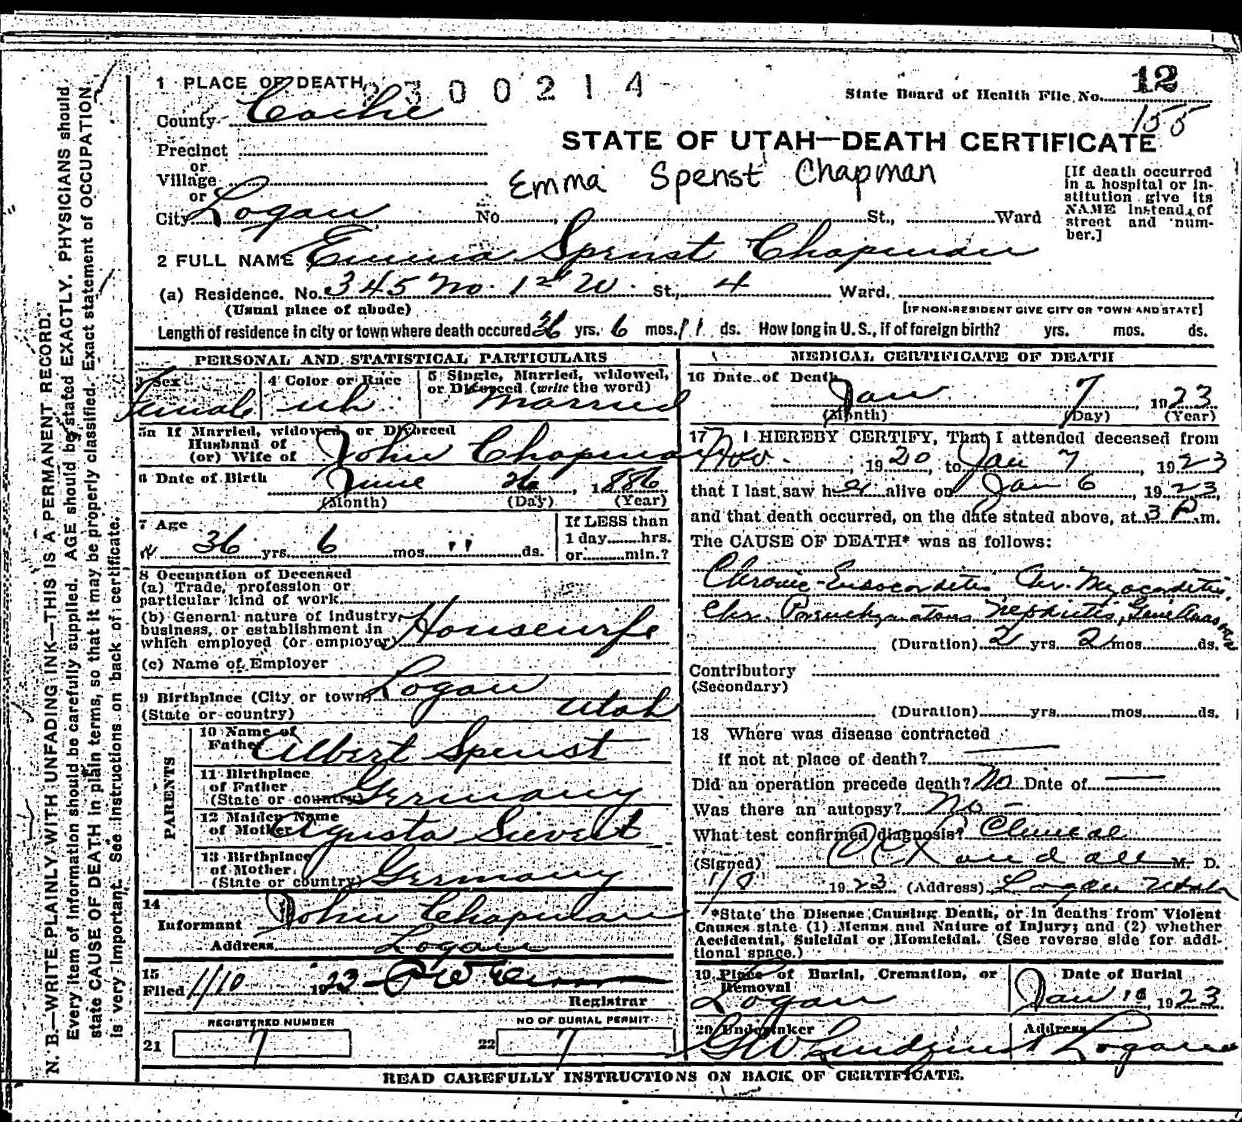 1 PLACE OF DEATH 2300214
State Board of Health File No. 12
155
County Cache
STATE OF UTAH—DEATH CERTIFICATE
Precinct
or
Village
or
Emma Spenst Chapman
[If death occurred
in a hospital or in-
stitution give its
NAME instead of
street and num-
ber.]
City Logan No. St., Ward
2 FULL NAME Emma Spenst Chapman
(a) Residence. No. 345 No. 1st W. St., 4 Ward.
(Usual place of abode) [IF NON-RESIDENT GIVE CITY OR TOWN AND STATE]
Length of residence in city or town where death occured 36 yrs. 6 mos. 11 ds. How long in U. S., if of foreign birth? yrs. mos. ds.
PERSONAL AND STATISTICAL PARTICULARS
3 Sex
Female
4 Color or Race
wh
5 Single, Married, widowed,
or Divorced (write the word)
Married
5a If Married, widowed, or Divorced
Husband of
(or) Wife of John Chapman
6 Date of Birth June 26, 1886
(Month) (Day) (Year)
7 Age
36 yrs. 6 mos. 11 ds.
If LESS than
1 day hrs.
or min.?
8 Occupation of Deceased
(a) Trade, profession or
particular kind of work
(b) General nature of industry
business, or establishment in
which employed (or employer) Housewife
(c) Name of Employer
9 Birthplace (City or town) Logan
(State or country) Utah
PARENTS
10 Name of
Father Albert Spenst
11 Birthplace
of Father
(State or country) Germany
12 Maiden Name
of Mother Agusta Sievert
13 Birthplace
of Mother
(State or country) Germany
14
Informant John Chapman
Address Logan
15
Filed 1/10 1923
Registrar
REGISTERED NUMBER
21 7
NO OF BURIAL PERMIT
22 7
MEDICAL CERTIFICATE OF DEATH
16 Date of Death
Jan 7, 1923
(Month) (Day) (Year)
17 I HEREBY CERTIFY, That I attended deceased from
Nov. , 1920, to Jan 7, 1923
that I last saw her alive on Jan 6, 1923
and that death occurred, on the date stated above, at 3 P m.
The CAUSE OF DEATH* was as follows:
Chronic Endocarditis Chr. Myocarditis,
Chr. Parenchymatous Nephritis,
(Duration) 2 yrs. 2 mos. ds.
Contributory
(Secondary)
(Duration) yrs. mos. ds.
18 Where was disease contracted
if not at place of death?
Did an operation precede death? No Date of
Was there an autopsy? No
What test confirmed diagnosis? Clinical
(Signed) Randall M. D.
1/8 1923 (Address) Logan Utah
*State the Disease Causing Death, or in deaths from Violent
Causes state (1) Means and Nature of Injury; and (2) whether
Accidental, Suicidal or Homicidal. (See reverse side for addi-
tional space.)
19 Place of Burial, Cremation, or
Removal
Logan
Date of Burial
Jan 10, 1923
20 Undertaker
GW Lindquist
Address
Logan
READ CAREFULLY INSTRUCTIONS ON BACK OF CERTIFICATE.
N. B.—WRITE PLAINLY WITH UNFADING INK—THIS IS A PERMANENT RECORD.
Every item of information should be carefully supplied. AGE should be stated EXACTLY. PHYSICIANS should
state CAUSE OF DEATH in plain terms, so that it may be properly classified. Exact statement of OCCUPATION
is very important. See instructions on back of certificate.